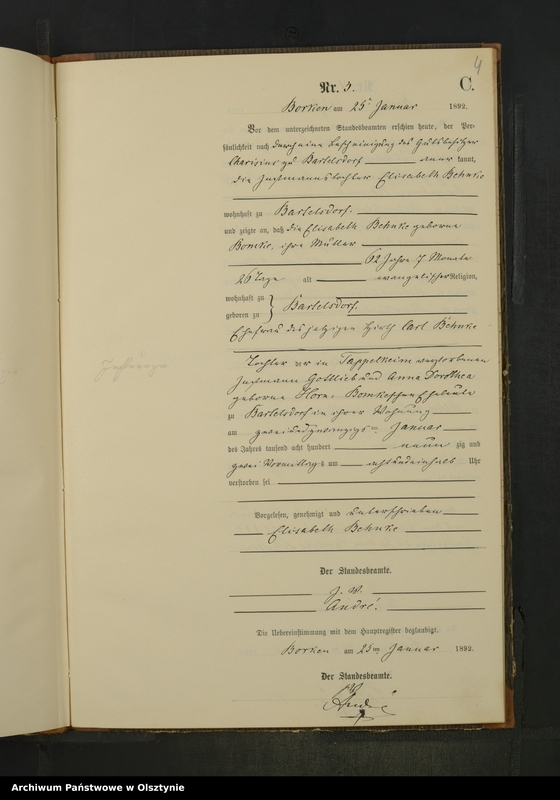 4
Nr. 3. C.
Borken am 25ten Januar 1892.
Vor dem unterzeichneten Standesbeamten erschien heute, der Per-
sönlichkeit nach durch eine Bescheinigung des Gutsbesitzer
zu Bartelsdorf aner kannt,
die Elisabeth Behnke
wohnhaft zu Bartelsdorf.
und zeigte an, daß die Elisabeth Behnke geborne
Bomke, ihre Mutter
62 Jahre 7 Monate
26 Tage alt evangelischer Religion,
wohnhaft zu
geboren zu Bartelsdorf.
Ehefrau des jetzigen Hirth Carl Behnke
Tochter der in Tappelkeim verstorbenen
Instmann Gottlieb und Anna Dorothea
geborne Bomkeschen Eheleute
zu Bartelsdorf in ihrer Wohnung
am zweiundzwanzigsten Januar
des Jahres tausend acht hundert neun zig und
zwei Vormittags um achtundeinhalb Uhr
verstorben sei
Vorgelesen, genehmigt und unterschrieben
Elisabeth Behnke
Der Standesbeamte.
J. V.
André.
Die Uebereinstimmung mit dem Hauptregister beglaubigt.
Borken am 25ten Januar 1892.
Der Standesbeamte.
J. V.
André
Archiwum Państwowe w Olsztynie